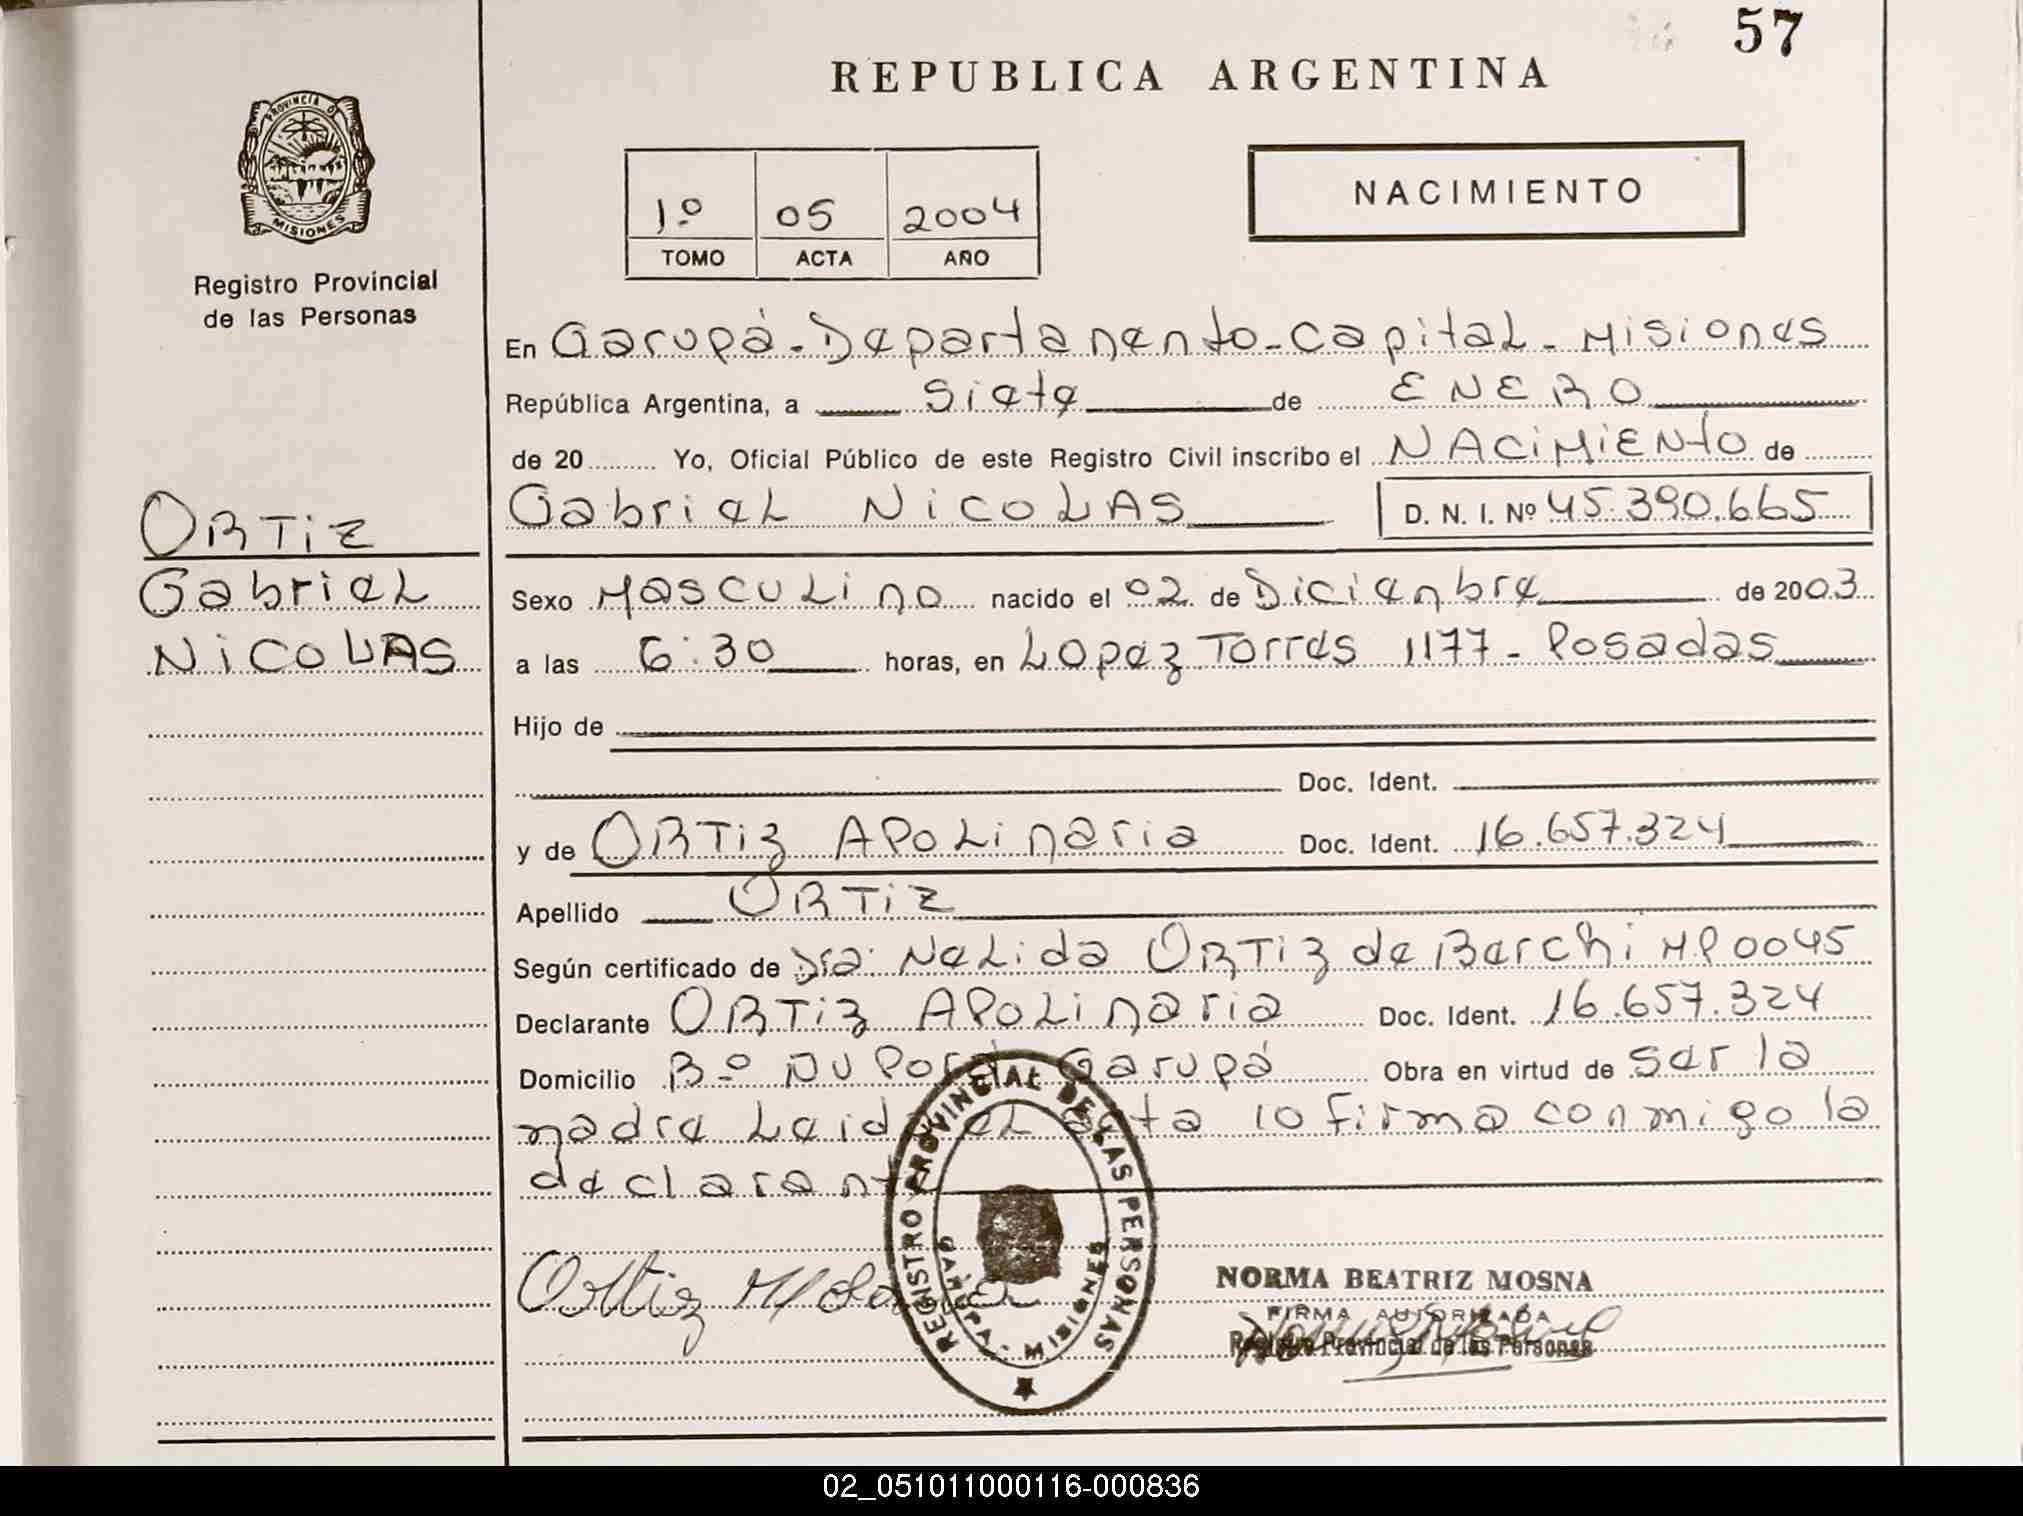 57
REPUBLICA ARGENTINA
PROVINCIA DE
MISIONES
Registro Provincial
de las Personas
NACIMIENTO
1º 05 2004
TOMO ACTA AÑO
En Garupá - Departamento - Capital - Misiones
República Argentina, a Siete de ENERO
de 20 Yo, Oficial Público de este Registro Civil inscribo el NACIMIENTO de
Gabriel NICOLAS D. N. I. Nº 45.390.665
ORTIZ
Gabriel
NICOLAS
Sexo Masculino nacido el 02 de Diciembre de 2003
a las 6:30 horas, en Lopez Torres 1177 - Posadas
Hijo de
Doc. Ident.
y de ORTIZ APOLinaria Doc. Ident. 16.657.324
Apellido ORTIZ
Según certificado de Dra. Nelida ORTIZ de Barchi MP 0045
Declarante ORTIZ APOLinaria Doc. Ident. 16.657.324
Domicilio Bº Garupá Obra en virtud de ser la
madre Leida el acta lo firma conmigo la
declarante
Ortiz
REGISTRO PROVINCIAL DE LAS PERSONAS
GARUPA - MISIONES
NORMA BEATRIZ MOSNA
FIRMA AUTORIZADA
Registro Provincial de las Personas
02_051011000116-000836